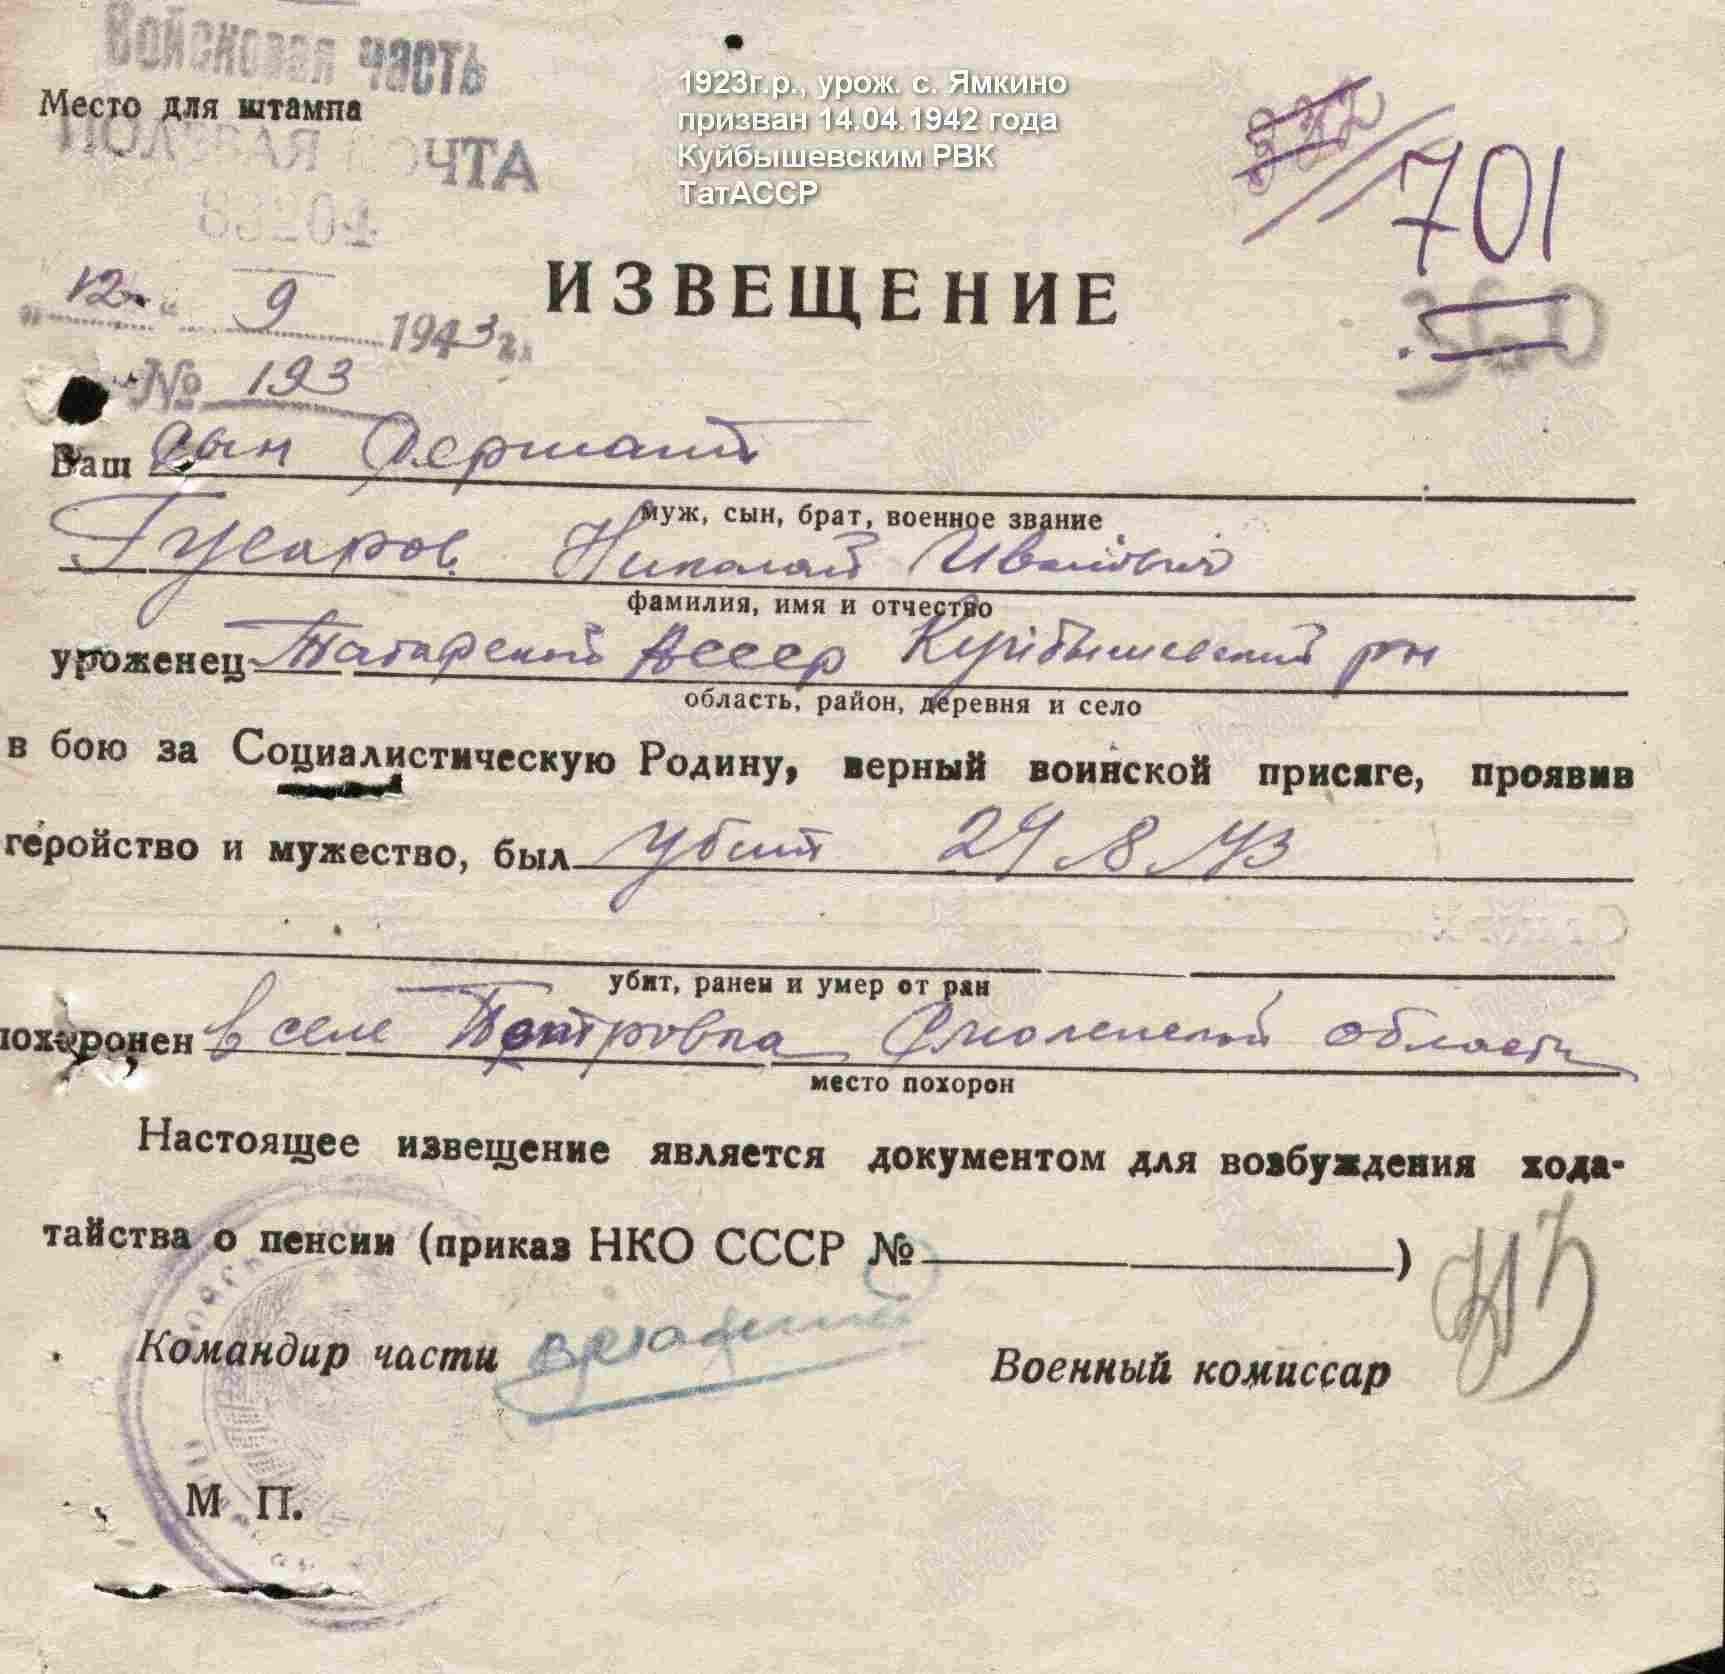 Войсковая часть
Место для штампа
ПОЛЕВАЯ ПОЧТА
83204
1923г.р., урож. с. Ямкино
призван 14.04.1942 года
Куйбышевским РВК
ТатАССР
701
360
ИЗВЕЩЕНИЕ
"12" 9 1943 г.
№ 193
Ваш сын Сержант
муж, сын, брат, военное звание
Гусаров Николай Иванович
фамилия, имя и отчество
уроженец Татарской Асср Куйбышевский рн
область, район, деревня и село
в бою за Социалистическую Родину, верный воинской присяге, проявив
геройство и мужество, был убит 24/8/43
убит, ранен и умер от ран
похоронен в селе Петровка Смоленской области
место похорон
Настоящее извещение является документом для возбуждения хода-
тайства о пенсии (приказ НКО СССР №)
Командир части
Военный комиссар
М П.